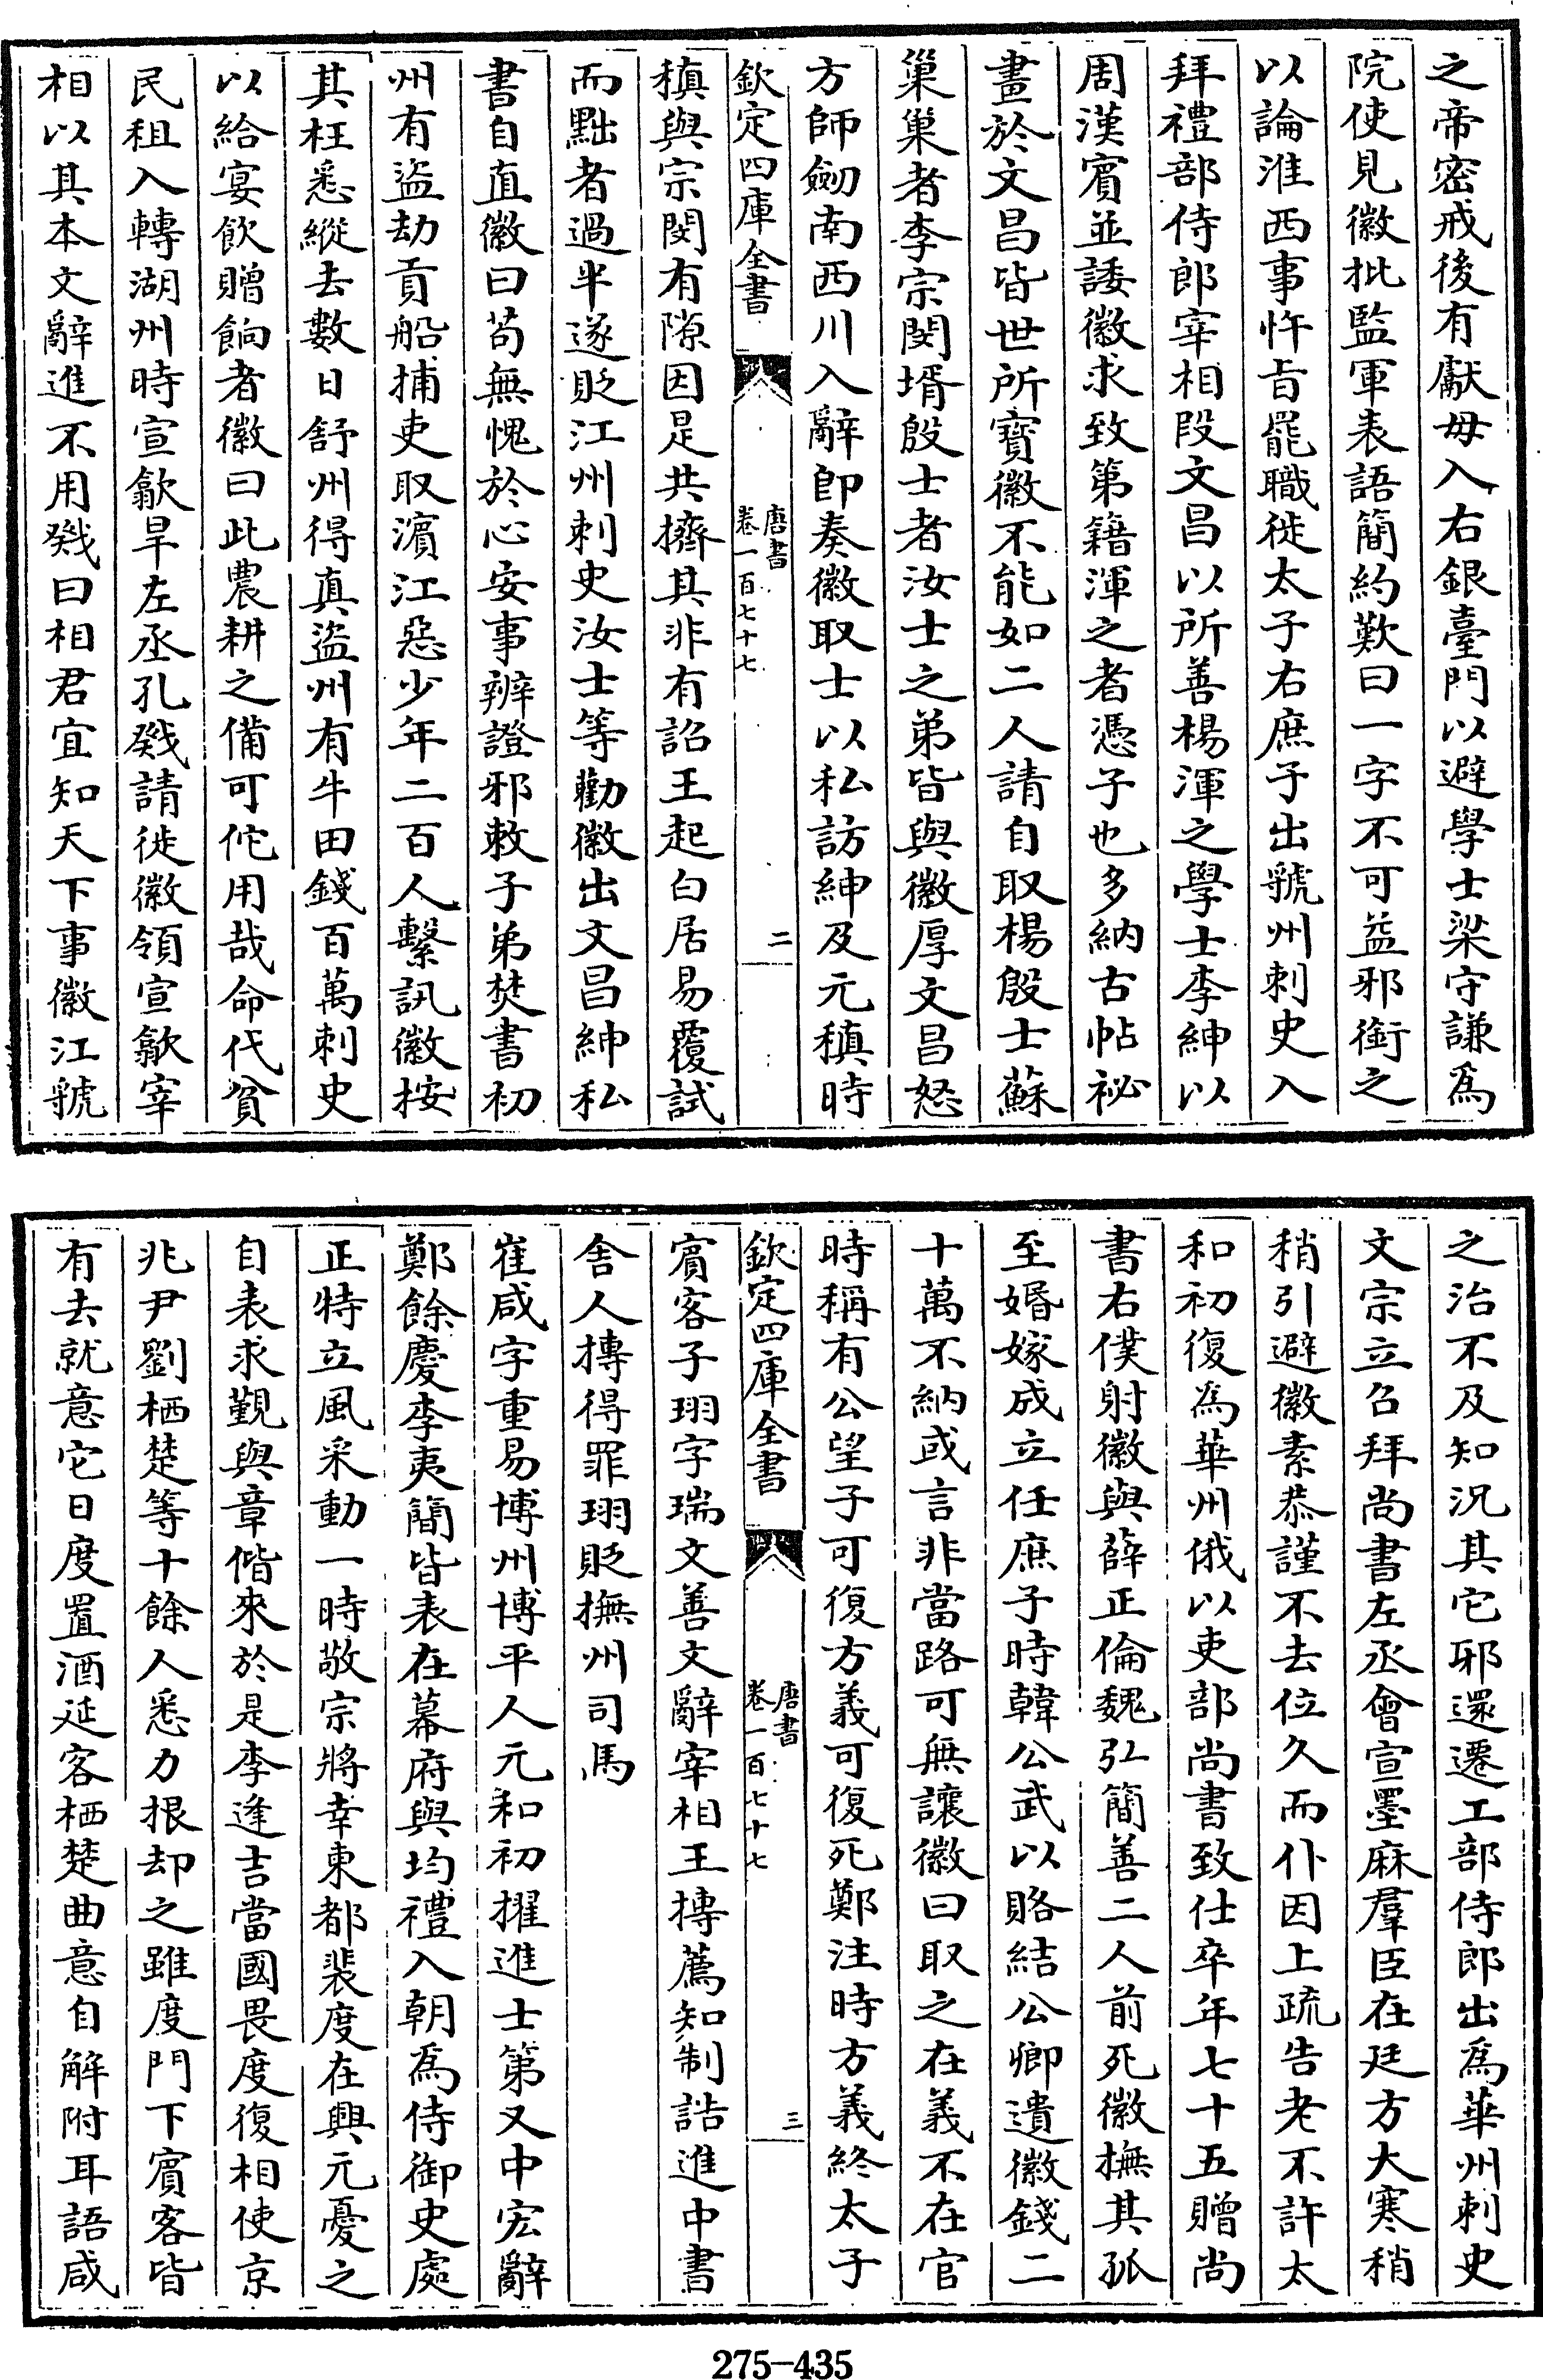 之帝密戒後有獻毋入右銀臺門以避學士梁守謙爲
院使見徽批監軍表語簡約歎曰一字不可益邪銜之
以論淮西事忤旨罷職徙太子右庶子出虢州刺史入
拜禮部侍郎宰相段文昌以所善楊渾之學士李紳以
周漢賓並諉徽求致第籍渾之者憑子也多納古帖祕
畫於文昌皆世所寶徽不能如二人請自取楊殷士蘇
巢巢者李宗閔壻殷士者汝士之弟皆與徽厚文昌怒
方師劒南西川入辭即奏徽取士以私訪紳及元稹時
欽定四庫全書 唐書卷一百七十七 二
稹與宗閔有隙因是共擠其非有詔王起白居易覆試
而黜者過半遂貶江州刺史汝士等勸徽出文昌紳私
書自直徽曰苟無愧於心安事辨證邪敕子弟焚書初
州有盜劫貢船捕吏取濱江惡少年二百人繫訊徽按
其枉悉縱去數日舒州得真盜州有牛田錢百萬刺史
以給宴飲贈餉者徽曰此農耕之備可佗用哉命代貧
民租入轉湖州時宣歙旱左丞孔戣請徙徽領宣歙宰
相以其本文辭進不用戣曰相君宜知天下事徽江虢
之治不及知況其它邪還遷工部侍郎出爲華州刺史
文宗立召拜尚書左丞會宣墨麻羣臣在廷方大寒稍
稍引避徽素恭謹不去位久而仆因上疏告老不許太
和初復爲華州俄以吏部尚書致仕卒年七十五贈尚
書右僕射徽與薛正倫魏弘簡善二人前死徽撫其孤
至婚嫁成立任庶子時韓公武以賂結公卿遺徽錢二
十萬不納或言非當路可無讓徽曰取之在義不在官
時稱有公望子可復方義可復死鄭注時方義終太子
欽定四庫全書 唐書卷一百七十七 三
賓客子珝字瑞文善文辭宰相王摶薦知制誥進中書
舍人摶得罪珝貶撫州司馬
崔咸字重易博州博平人元和初擢進士第又中宏辭
鄭餘慶李夷簡皆表在幕府與均禮入朝爲侍御史處
正特立風采動一時敬宗將幸東都裴度在興元憂之
自表求覲與章偕來於是李逢吉當國畏度復相使京
兆尹劉栖楚等十餘人悉力根却之雖度門下賓客皆
有去就意它日度置酒延客栖楚曲意自解附耳語咸
275-435